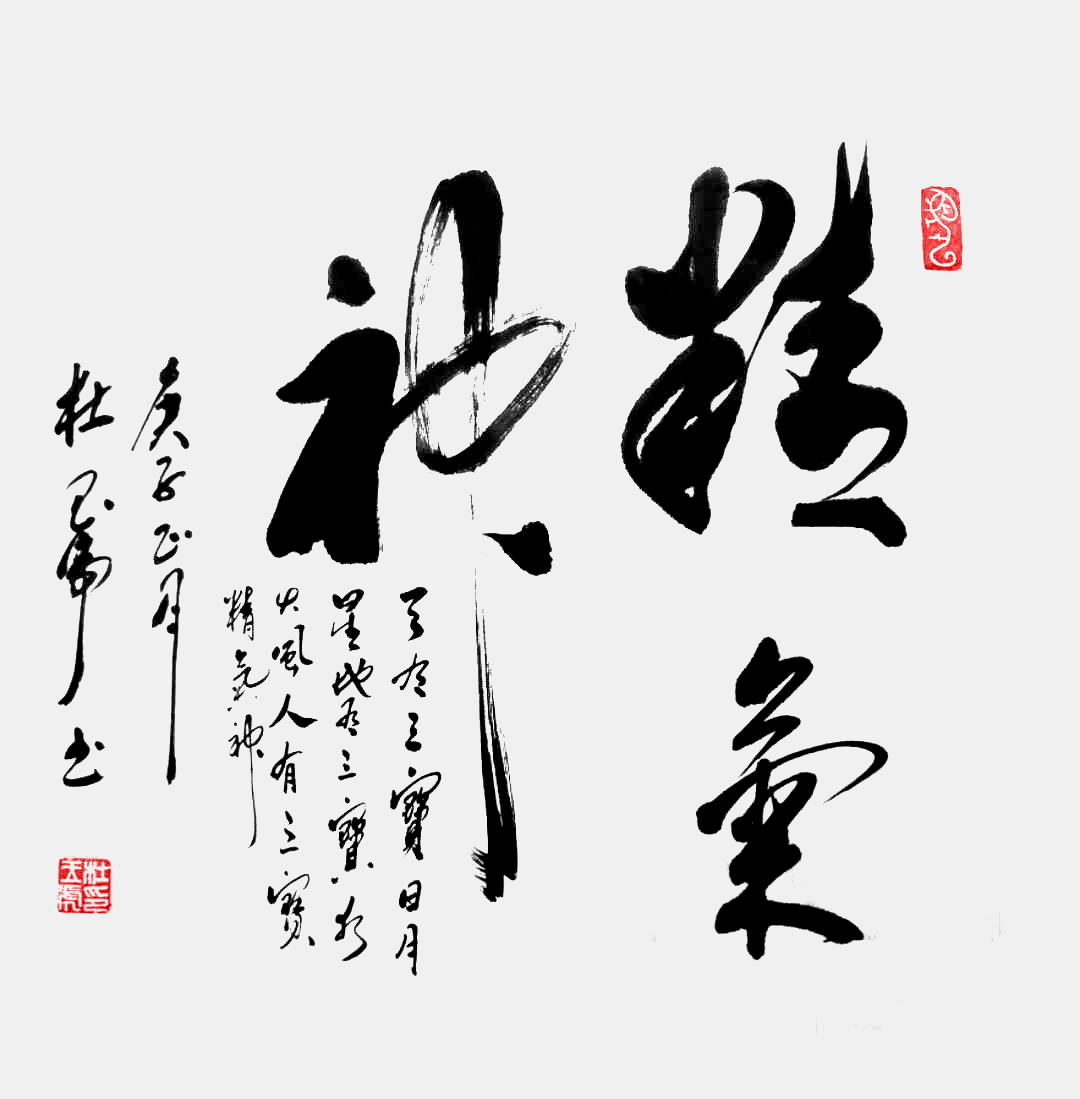 精氣
神
天有三寶日月
星地有三寶水
火風人有三寶
精氣神
庚子正月
杜玉虎书